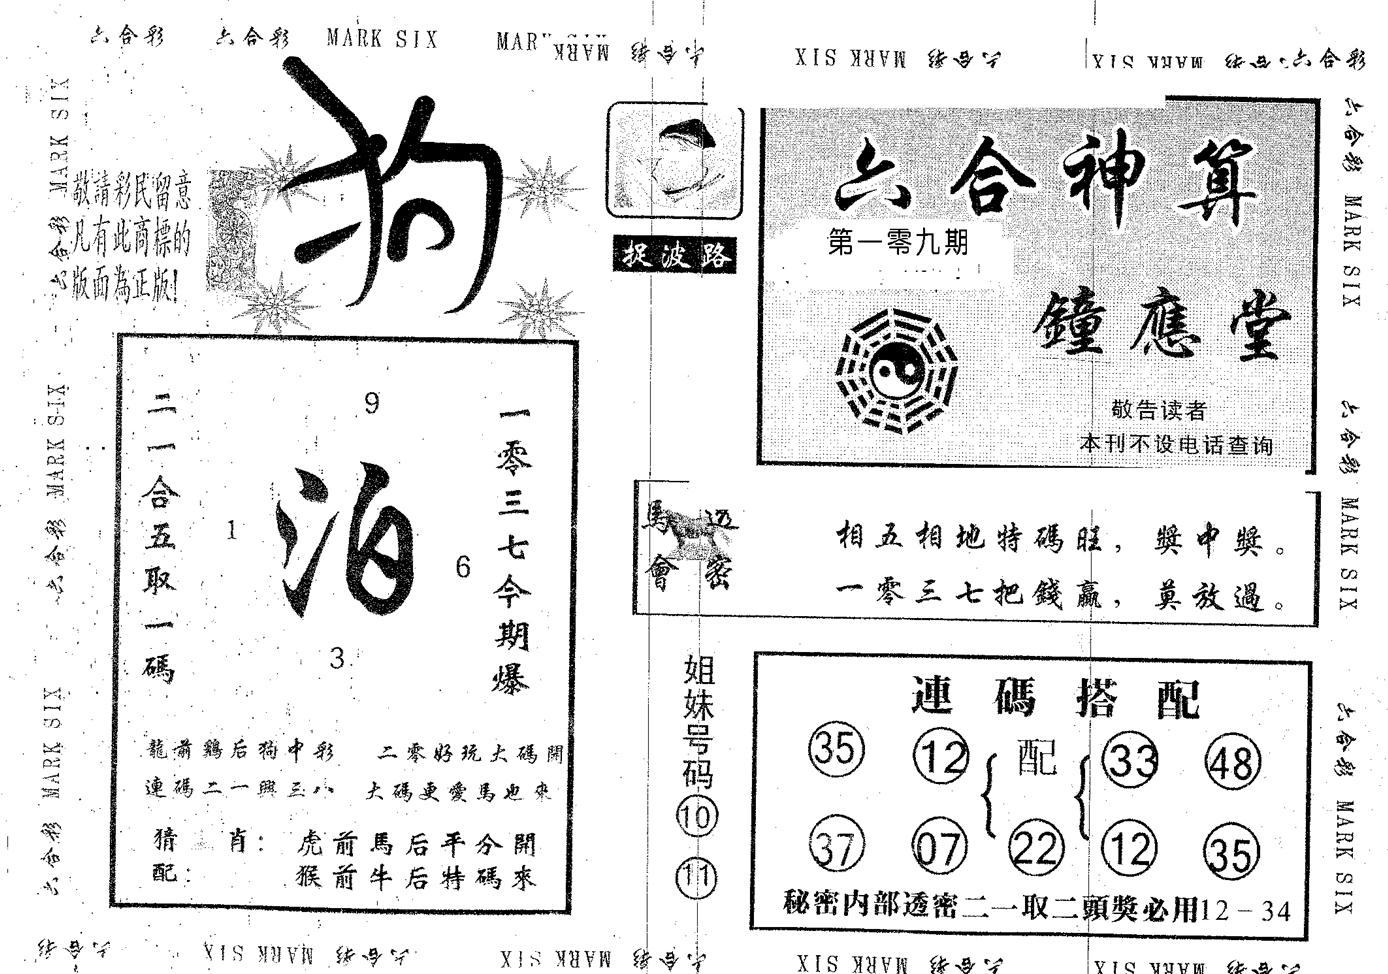 六合彩 六合彩 MARK SIX MARK SIX 六合彩
MARK SIX 六合彩 MARK SIX 六合彩 六合彩
六合彩 MARK SIX
六合彩 MARK SIX
六合彩 MARK SIX
狗
敬請彩民留意
凡有此商標的
版面為正版!
二一合五取一碼
9
1
泊
6
3
一零三七今期爆
龍前鷄后狗中彩 二零好玩大碼開
連碼二一興三八 大碼更愛馬也來
猜肖: 虎前馬后平分開
配: 猴前牛后特碼來
捉波路
六合神算
第一零九期
鐘應堂
敬告读者
本刊不设电话查询
馬會
透密
相五相地特碼旺，獎中獎。
一零三七把錢贏，莫放過。
姐妹号码
10
11
連碼搭配
35 12 { 配 { 33 48
37 07 22 12 35
秘密内部透密二一取二頭獎必用12-34
六合彩 MARK SIX
六合彩 MARK SIX
六合彩 MARK SIX
六合彩 MARK SIX 六合彩 MARK SIX 六合彩 MARK SIX 六合彩 MARK SIX 六合彩